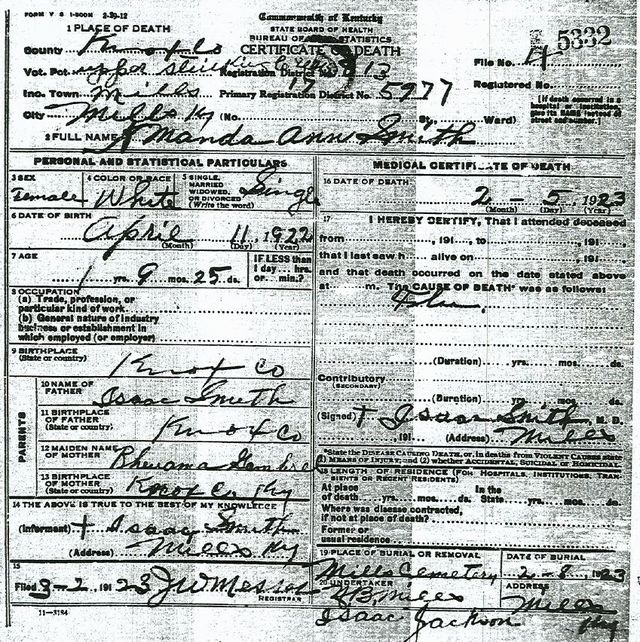 FORM V S 1-500M 2-29-12
Commonwealth of Kentucky
STATE BOARD OF HEALTH
BUREAU OF STATISTICS
CERTIFICATE OF DEATH
1 PLACE OF DEATH
County Knox Co
Vot. Pct. Registration District No. 13
Inc. Town Mills Primary Registration District No. 5977
City Mills Ky (No. St., Ward)
File No. 4 5332
Registered No.
[If death occurred in a hospital or institution, give its NAME instead of street and number.]
2 FULL NAME Amanda Ann Smith
PERSONAL AND STATISTICAL PARTICULARS
3 SEX Female
4 COLOR OR RACE White
5 SINGLE, MARRIED WIDOWED, OR DIVORCED (Write the word) Single
6 DATE OF BIRTH
April 11, 1922
(Month) (Day) (Year)
7 AGE
1 yrs. 9 mos. 25 ds.
IF LESS than 1 day... hrs. or... min.?
8 OCCUPATION
(a) Trade, profession, or particular kind of work
(b) General nature of industry business or establishment in which employed (or employer)
9 BIRTHPLACE
(State or country) Knox Co
PARENTS
10 NAME OF FATHER Isaac Smith
11 BIRTHPLACE OF FATHER (State or country) Knox Co
12 MAIDEN NAME OF MOTHER
13 BIRTHPLACE OF MOTHER (State or country) Knox Co Ky
14 THE ABOVE IS TRUE TO THE BEST OF MY KNOWLEDGE
(Informant) + Isaac Smith
(Address) Mills Ky
15
Filed 3-2, 1923 J W Messer
REGISTRAR
11-3184
MEDICAL CERTIFICATE OF DEATH
16 DATE OF DEATH
2 - 5, 1923
(Month) (Day) (Year)
17 I HEREBY CERTIFY, That I attended deceased
from , 191 , to , 191 ,
that I last saw h alive on , 191 ,
and that death occurred on the date stated above
at m. The CAUSE OF DEATH* was as follows:
Flu
(Duration) yrs. mos. ds.
Contributory
(SECONDARY)
(Duration) yrs. mos. ds.
(Signed) + Isaac Smith M. D.
, 191 (Address) Mills
*State the DISEASE CAUSING DEATH, or, in deaths from VIOLENT CAUSES state (1) MEANS OF INJURY; and (2) whether ACCIDENTAL, SUICIDAL or HOMICIDAL
18 LENGTH OF RESIDENCE (FOR HOSPITALS, INSTITUTIONS, TRANSIENTS OR RECENT RESIDENTS)
At place of death yrs. mos. ds. In the State yrs. mos. ds.
Where was disease contracted, if not at place of death?
Former or usual residence
19 PLACE OF BURIAL OR REMOVAL
Mills Cemetery
DATE OF BURIAL
2-8, 1923
20 UNDERTAKER
Mills
Isaac Jackson
ADDRESS
Mills Ky